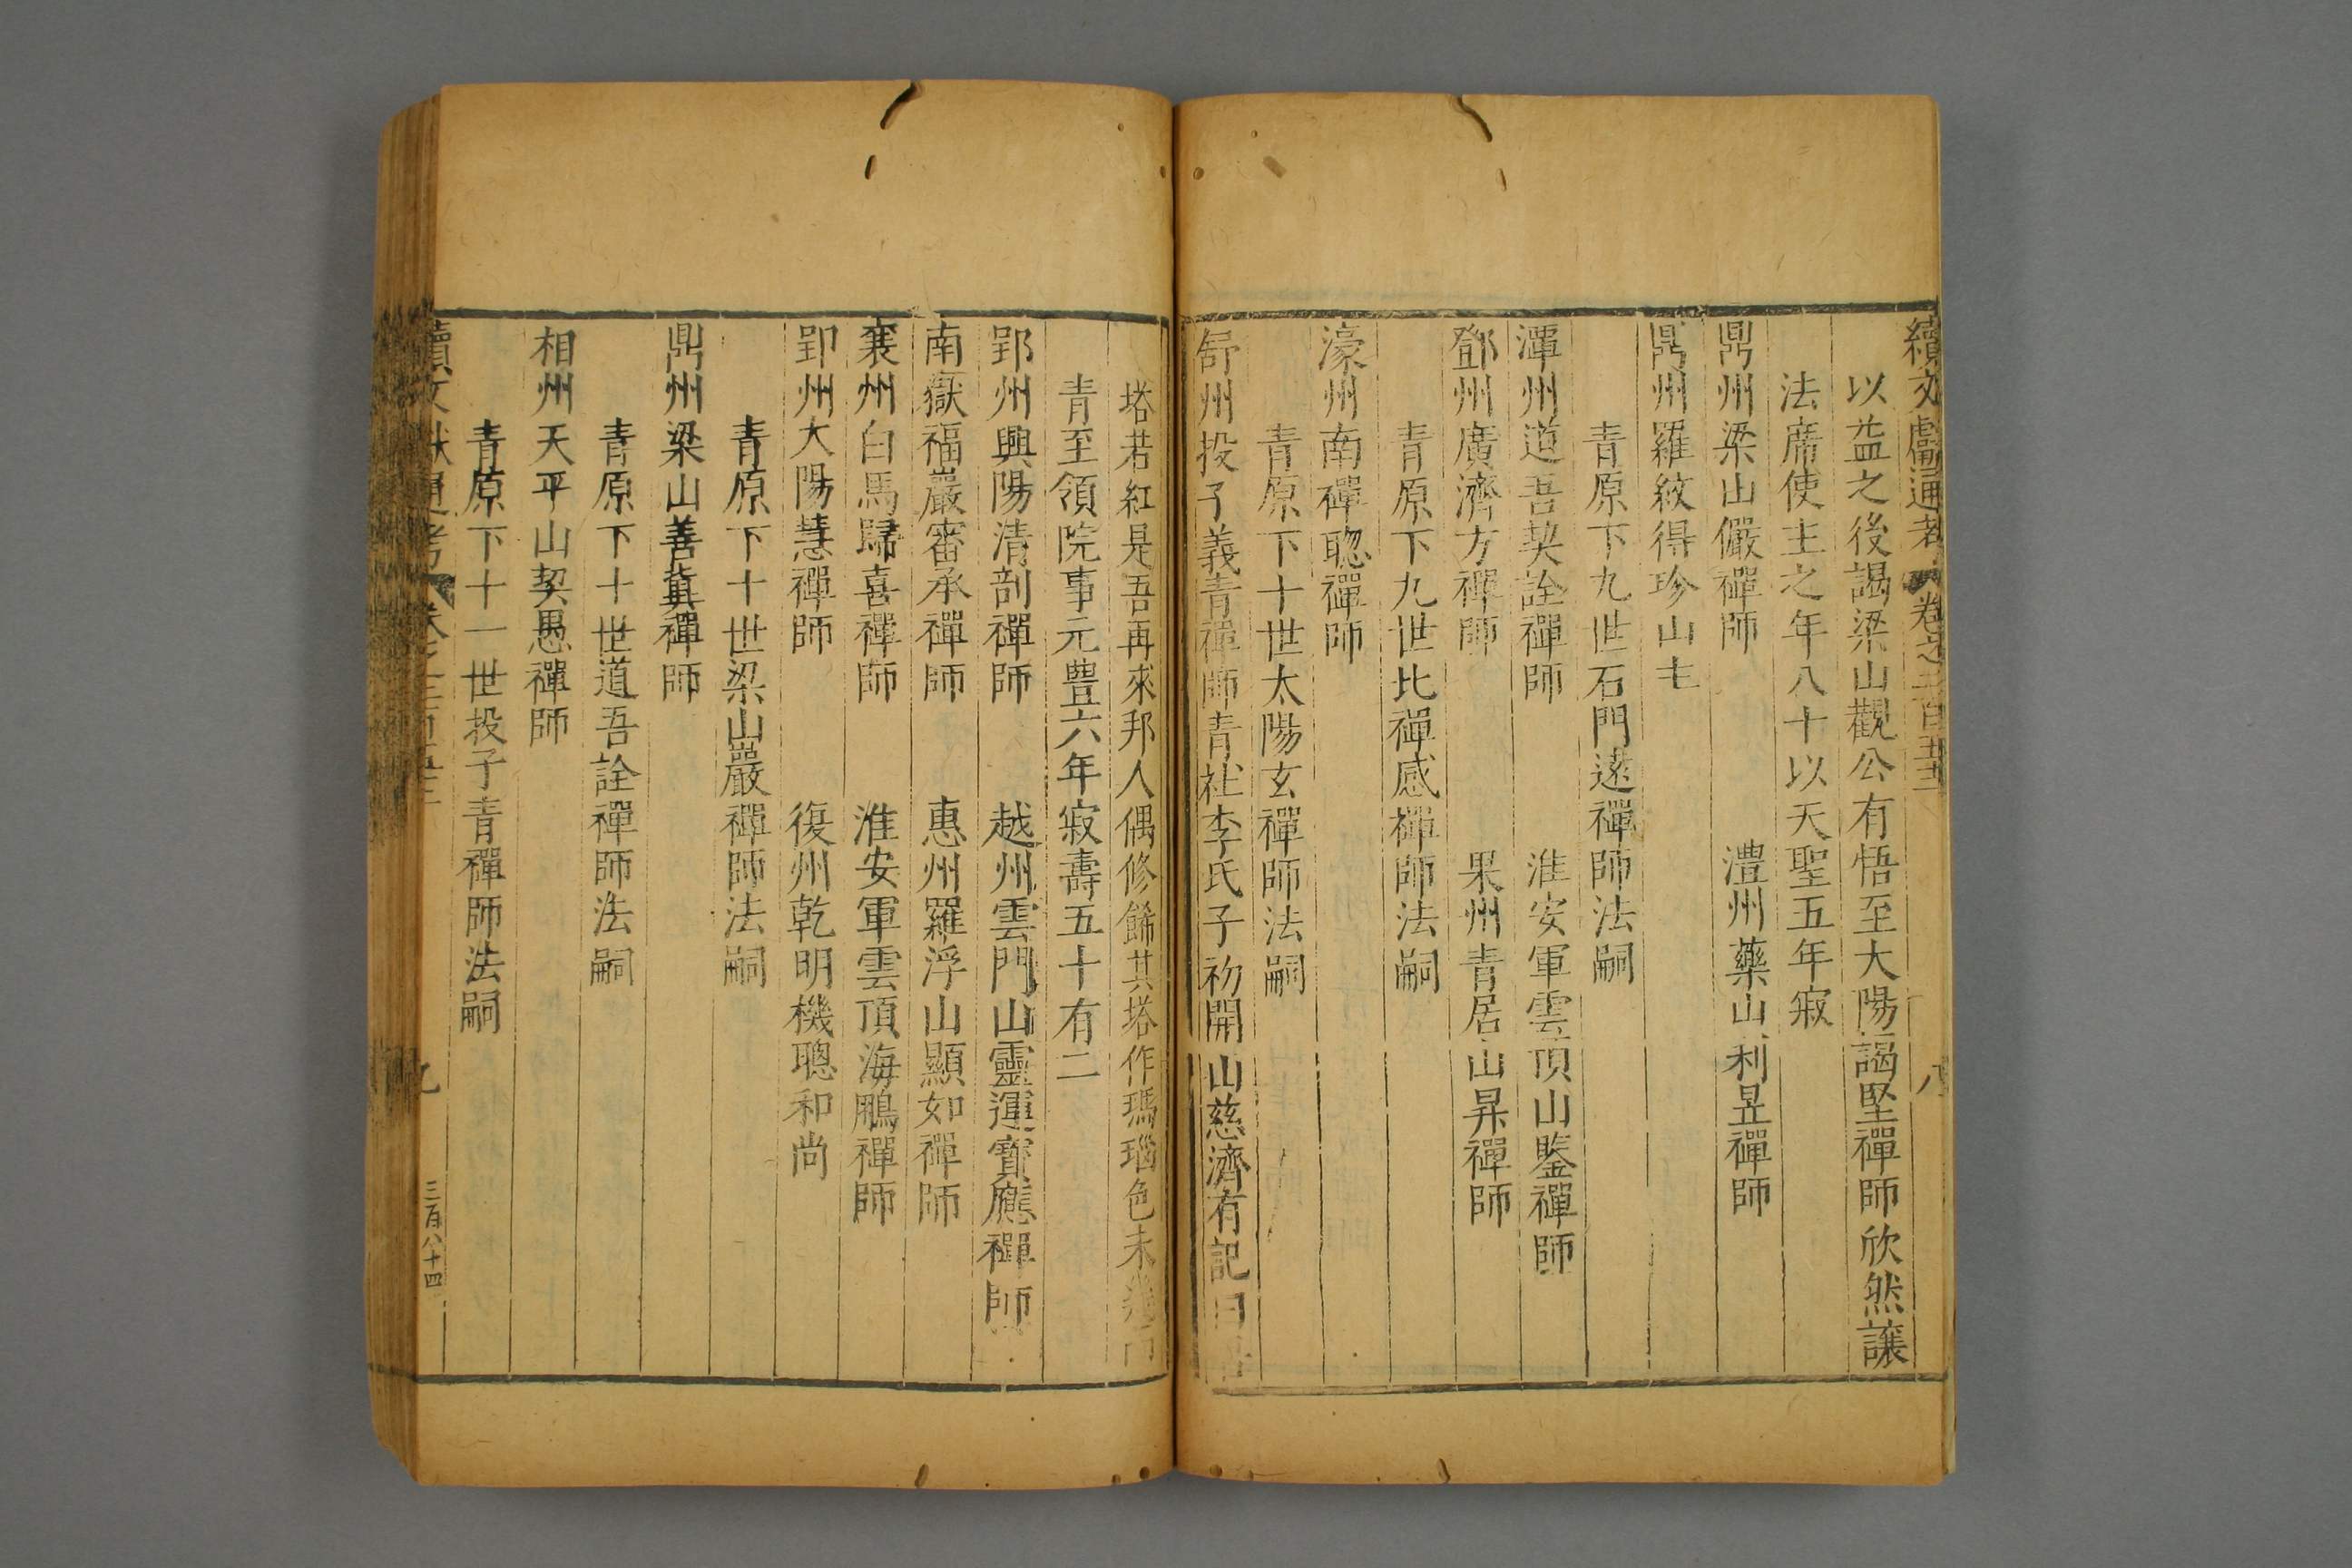 續文獻通考 卷之二百五十三 八
以益之後謁梁山觀公有悟至大陽謁堅禪師欣然讓
法席使主之年八十以天聖五年寂
鼎州梁山儼禪師 澧州藥山利昱禪師
鼎州羅紋得珍山主
青原下九世石門遠禪師法嗣
潭州道吾契詮禪師 淮安軍雲頂山鑒禪師
鄧州廣濟方禪師 果州青居山昇禪師
青原下九世比禪感禪師法嗣
濠州南禪聦禪師
青原下十世太陽玄禪師法嗣
舒州投子義青禪師青社李氏子初開山慈濟有記曰
塔若紅是吾再來邦人偶修飾其塔作瑪瑙色未幾而
青至領院事元豊六年寂壽五十有二
郢州興陽清剖禪師 越州雲門山靈運寶應禪師
南嶽福嚴審承禪師 惠州羅浮山顯如禪師
襄州白馬歸喜禪師 淮安軍雲頂海鵬禪師
郢州大陽慧禪師 復州乾明機聰和尚
青原下十世梁山巖禪師法嗣
鼎州梁山善冀禪師
青原下十世道吾詮禪師法嗣
相州天平山契愚禪師
青原下十一世投子青禪師法嗣
續文獻通考 卷之二百五十三 九 三百八十四